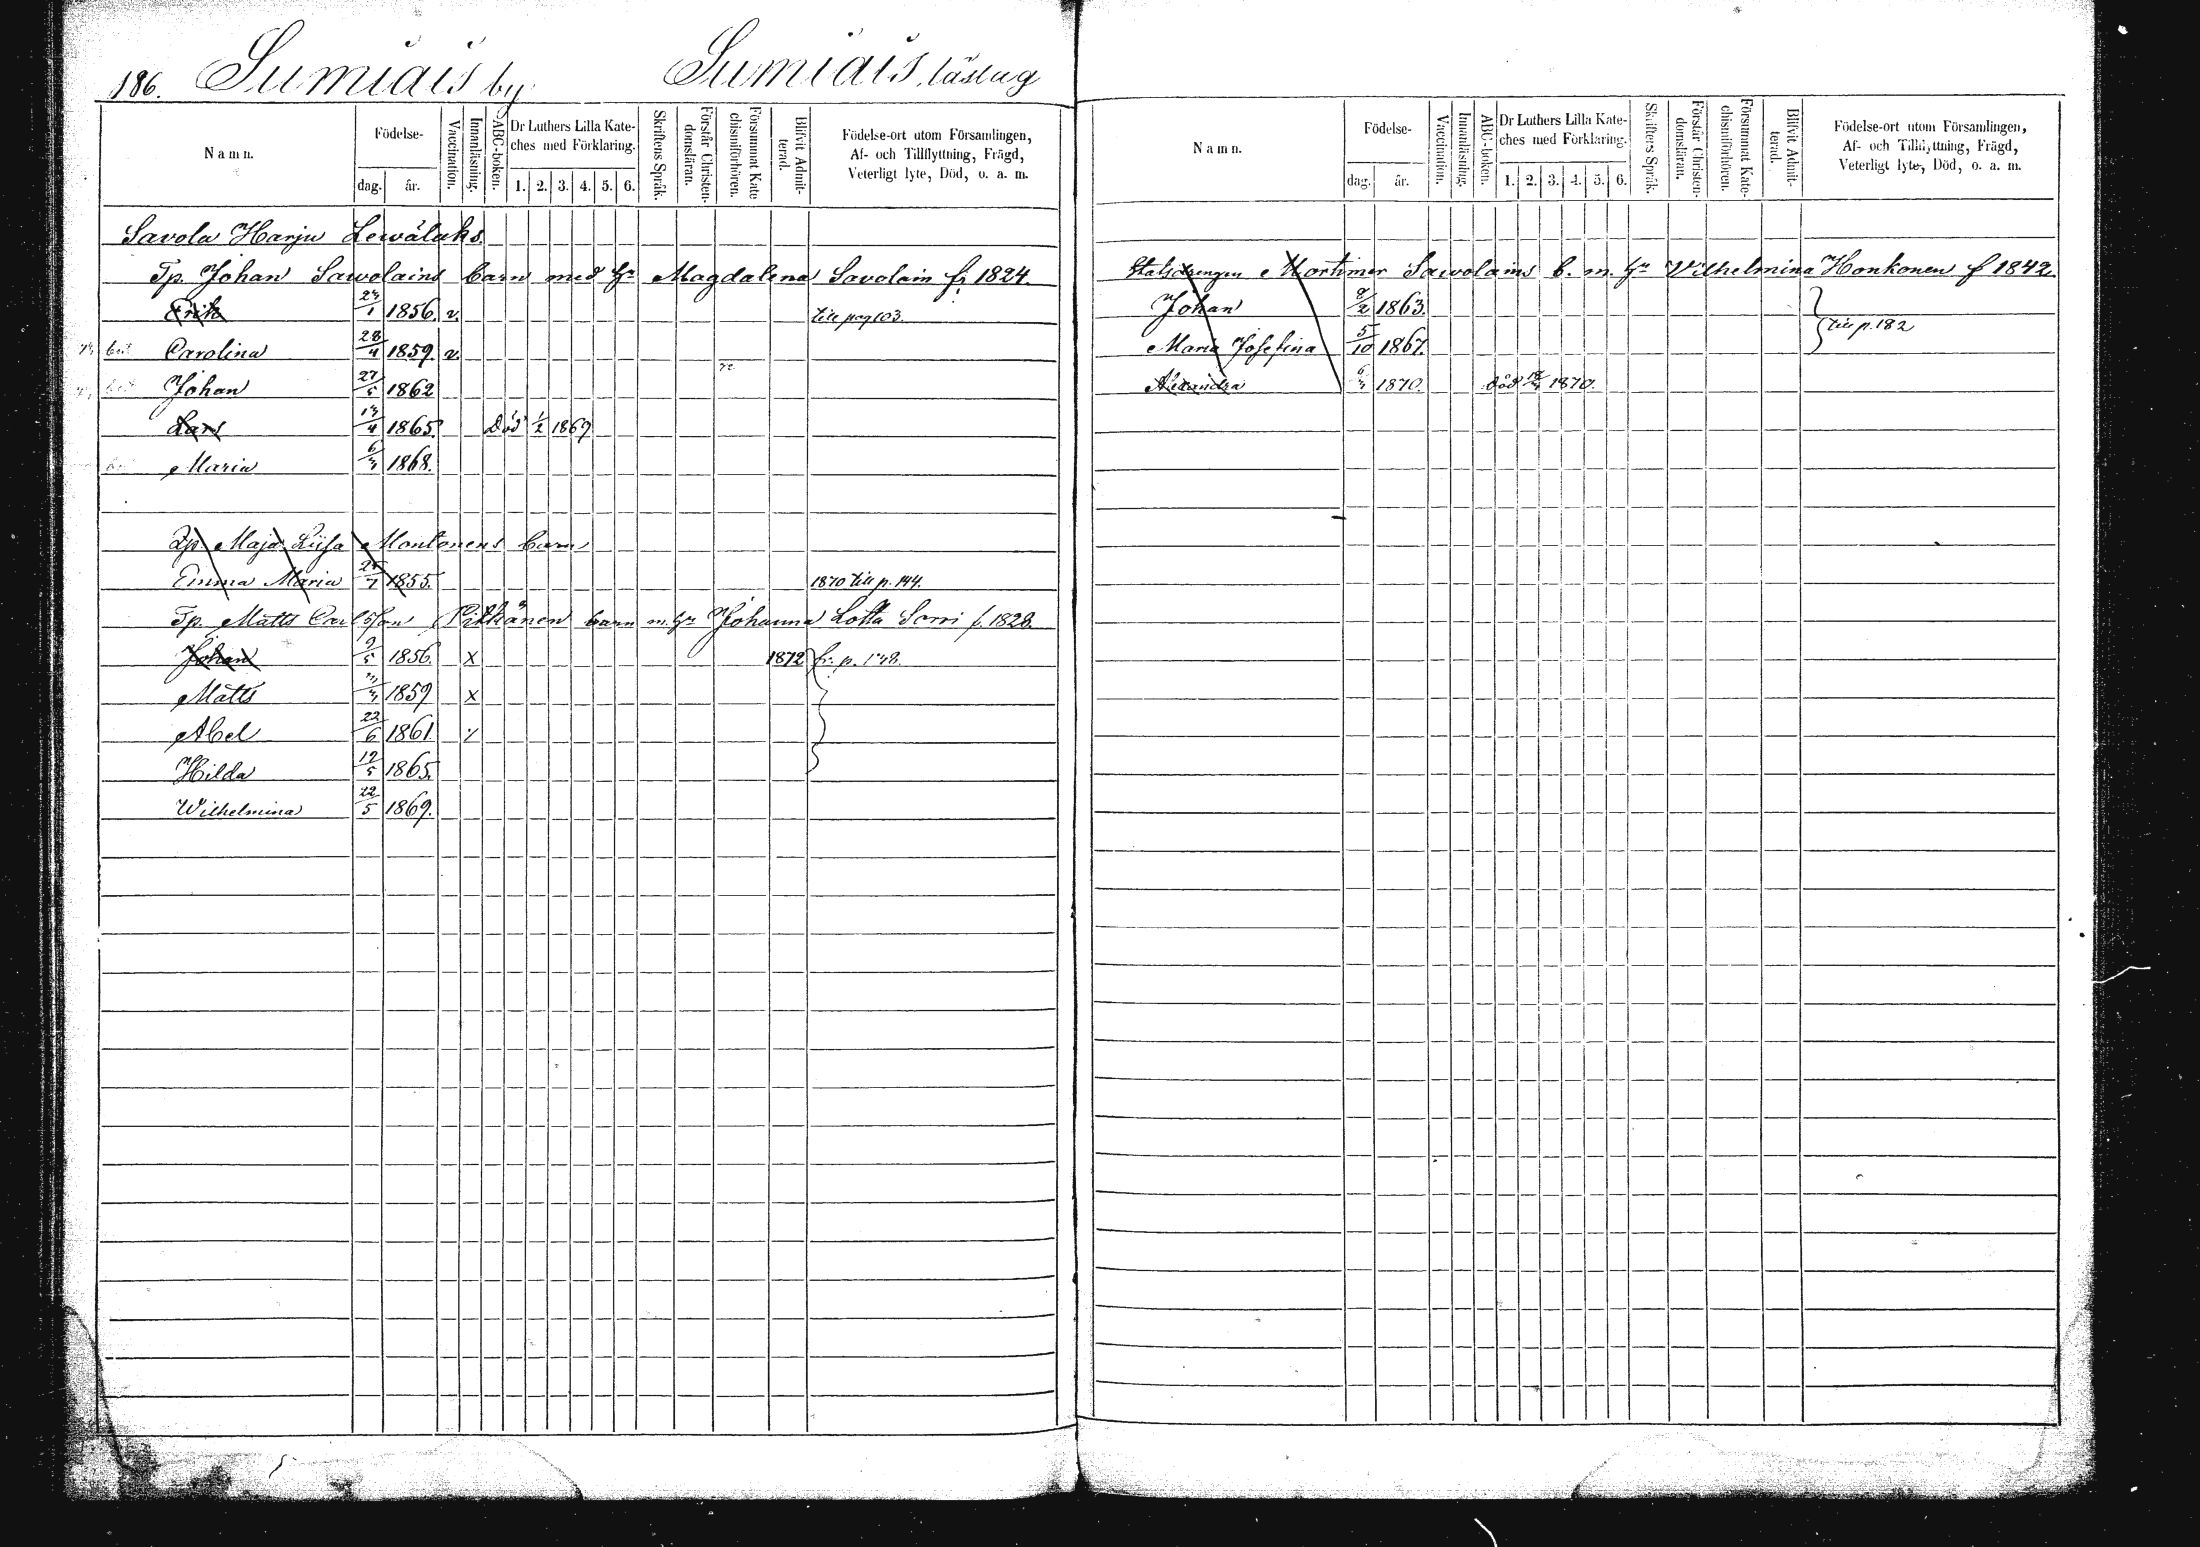 186. Sumiais by Sumiais läslag
Namn. Födelse- dag. år. Vaccination. Innanläsning. ABC-boken. Dr Luthers Lilla Kateches med Förklaring. 1. 2. 3. 4. 5. 6. Skriftens Språk. Förstår Christendomsläran. Försummat Katechismiförhören. Blifvit Admitterad. Födelse-ort utom Församlingen, Af- och Tillflyttning, Frägd, Veterligt lyte, Död, o. a. m.
Savola Harju Lewäluks.
Tp. Johan Sawolains barn med Hu Magdalena Savolain f. 1824.
Erik 1856. v. till pag 103.
Carolina 28/4 1859. v.
Johan 27/5 1862
Lars 1865. död 1/2 1869
Maria 1868.
Maja Liisa Montonens barn
Emma Maria 1855. 1870 till p. 144.
Tp. Matts Carlsson Pitkänen barn m. Hu Johanna Lotta Sorri f. 1828.
Johan 9/5 1856. x 1872 fr. p.
Matts 1859 x
Abel 22/6 1861
Hilda 12/5 1865.
Wilhelmina 22/5 1869.
Namn. Födelse- dag. år. Vaccination. Innanläsning. ABC-boken. Dr Luthers Lilla Kateches med Förklaring. 1. 2. 3. 4. 5. 6. Skriftens Språk. Förstår Christendomsläran. Försummat Katechismiförhören. Blifvit Admitterad. Födelse-ort utom Församlingen, Af- och Tillflyttning, Frägd, Veterligt lyte, Död, o. a. m.
Statsdrengen Mortimer Sawolains b. m. Hu Wilhelmina Honkonen f 1842.
Johan 1863.
till p. 182
Maria Josefina 5/10 1867.
Alexandra 1870. död 1870.